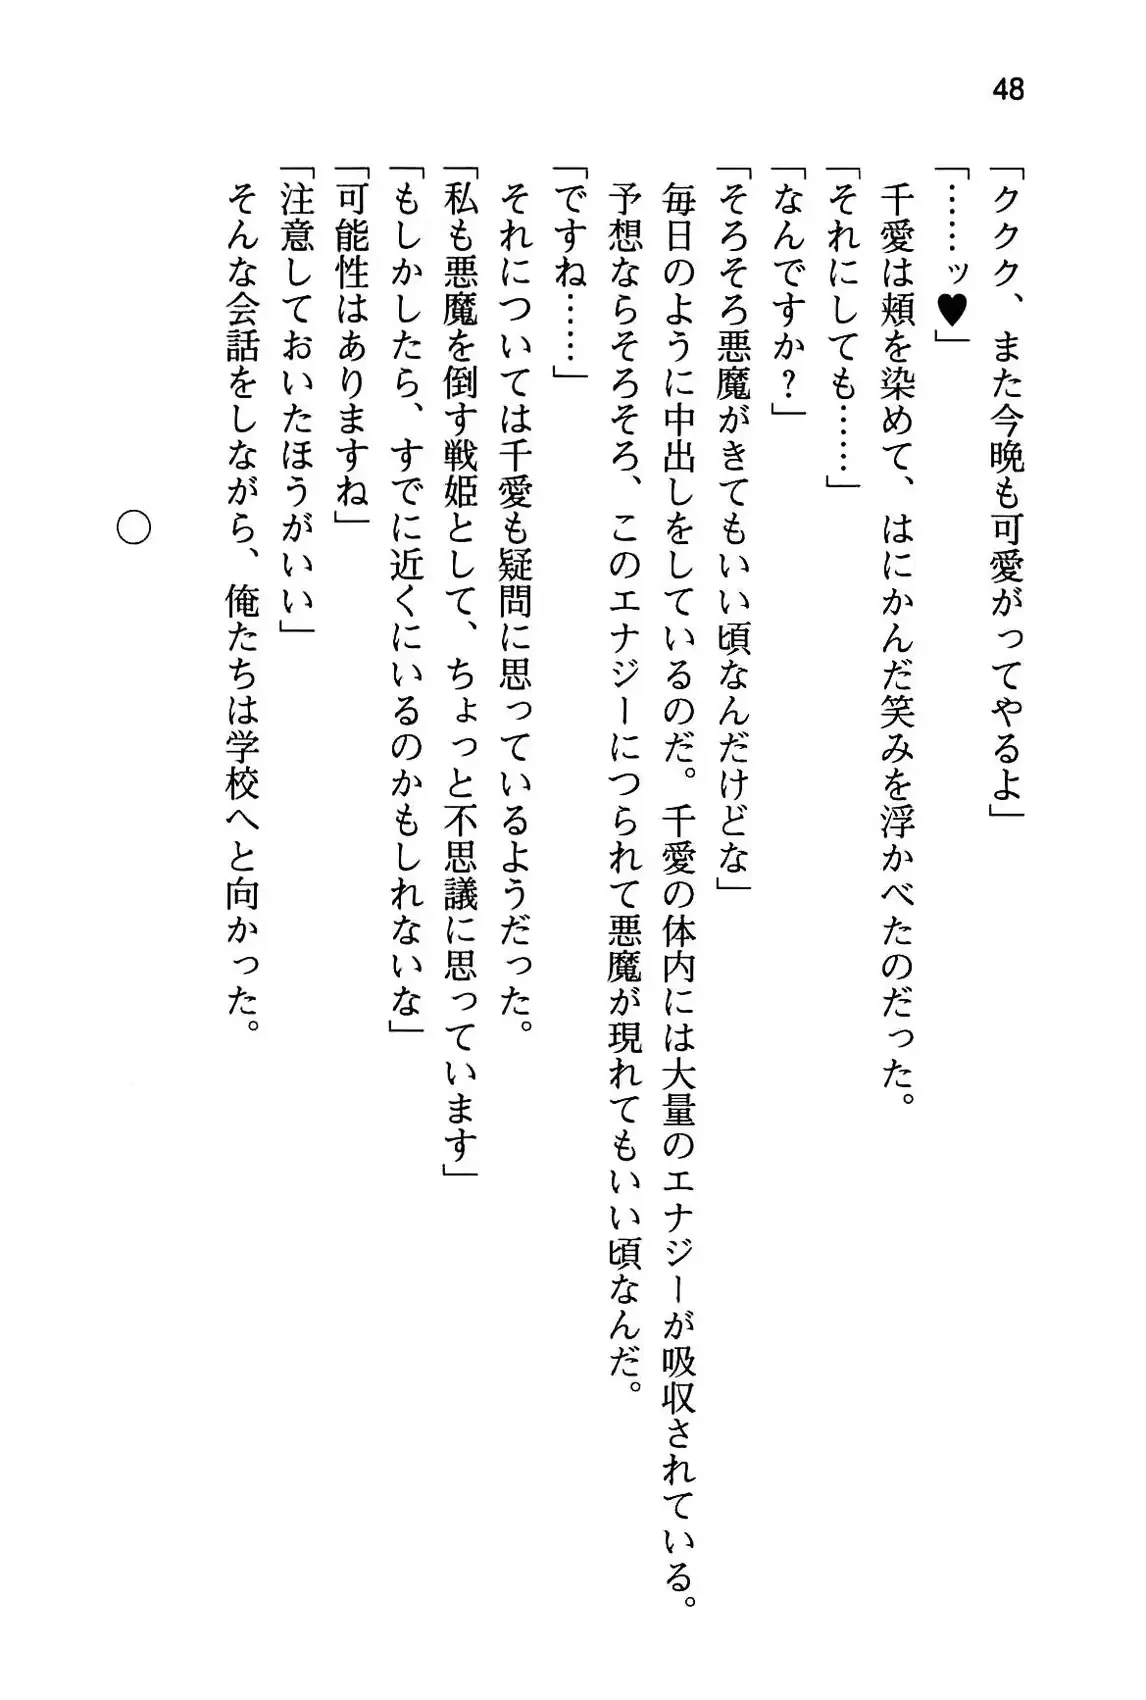 48
「ククク、また今晩も可愛がってやるよ」
「……ッ♥」
千愛は頬を染めて、はにかんだ笑みを浮かべたのだった。
「それにしても……」
「なんですか？」
「そろそろ悪魔がきてもいい頃なんだけどな」
毎日のように中出しをしているのだ。千愛の体内には大量のエナジーが吸収されている。
予想ならそろそろ、このエナジーにつられて悪魔が現れてもいい頃なんだ。
「ですね……」
それについては千愛も疑問に思っているようだった。
「私も悪魔を倒す戦姫として、ちょっと不思議に思っています」
「もしかしたら、すでに近くにいるのかもしれないな」
「可能性はありますね」
「注意しておいたほうがいい」
そんな会話をしながら、俺たちは学校へと向かった。
○